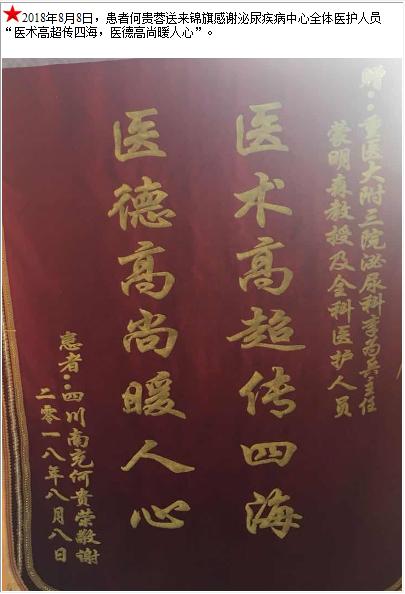 ★2018年8月8日，患者何贵蓉送来锦旗感谢泌尿疾病中心全体医护人员
“医术高超传四海，医德高尚暖人心”。
赠：重医大附三院泌尿科李为兵主任
蒙明森教授及全科医护人员
医术高超传四海
医德高尚暖人心
患者：四川南充何贵荣敬谢
二零一八年八月八日